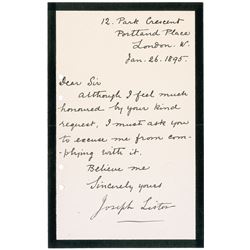 12. Park Crescent
Portland Place
London. W.
Jan. 26. 1895.
Dear Sir
Although I feel much
honoured by your kind
request, I must ask you
to excuse me from com-
plying with it.
Believe me
Sincerely yours
Joseph Lister